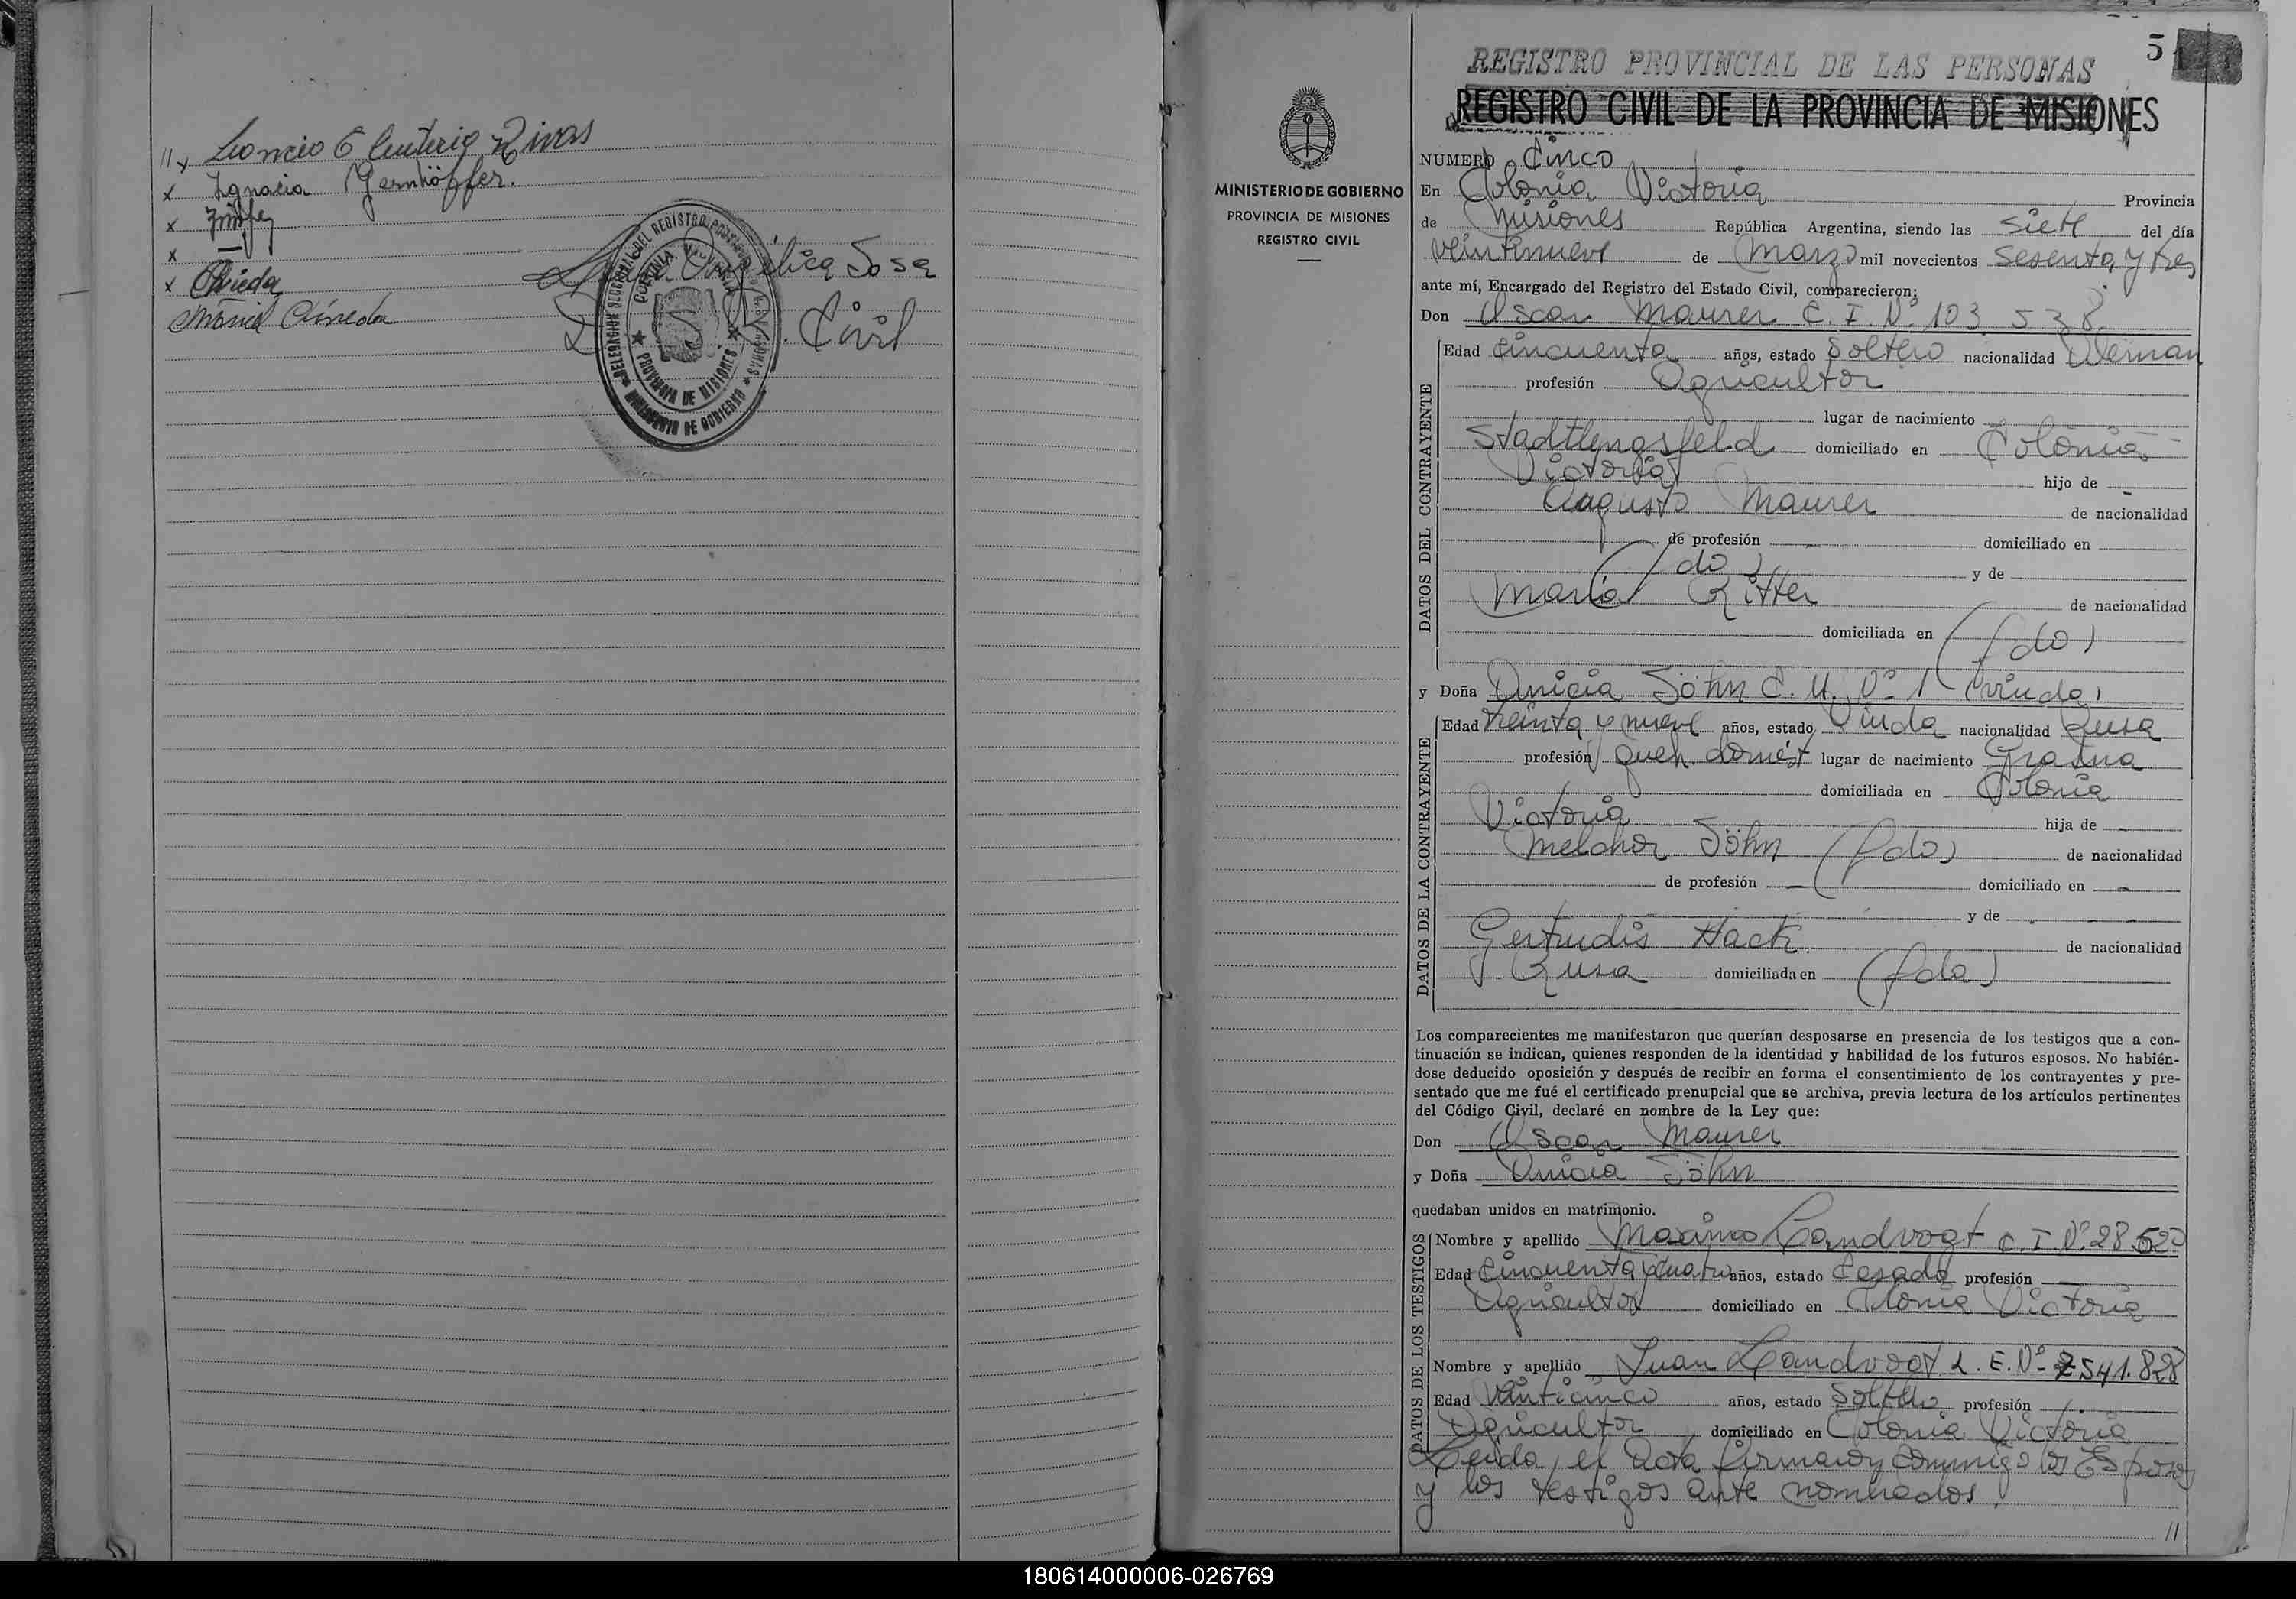 // x Leoncio Eleuterio Rivas
x Ignacia Gernhöffer.
x
x
x Pineda
María Angélica Sosa
D. S. R. Civil
DELEGACION SECCIONAL DEL REGISTRO PROVINCIAL DE LAS PERSONAS
COLONIA VICTORIA
PROVINCIA DE MISIONES
MINISTERIO DE GOBIERNO
MINISTERIO DE GOBIERNO
PROVINCIA DE MISIONES
REGISTRO CIVIL
5
REGISTRO PROVINCIAL DE LAS PERSONAS
REGISTRO CIVIL DE LA PROVINCIA DE MISIONES
NUMERO Cinco
En Colonia Victoria Provincia
de Misiones República Argentina, siendo las siete del día
veintinueve de Marzo mil novecientos sesenta y tres
ante mí, Encargado del Registro del Estado Civil, comparecieron:
Don Oscar Maurer C. I. Nº 103.538
DATOS DEL CONTRAYENTE
Edad cincuenta años, estado soltero nacionalidad Aleman
profesión Agricultor
lugar de nacimiento
Stadtlengsfeld domiciliado en Colonia
Victoria hijo de -
Augusto Maurer de nacionalidad
de profesión domiciliado en
(fdo) y de
María Ritter de nacionalidad
domiciliada en (fdo)
y Doña Anicia Söhn C. U. Nº 1 (viuda)
DATOS DE LA CONTRAYENTE
Edad treinta y nueve años, estado Viuda nacionalidad Rusa
profesión queh. domést lugar de nacimiento
domiciliada en Colonia
Victoria hija de -
Melchor Söhn (fdo) de nacionalidad
de profesión - domiciliado en -
y de - - -
Gertrudis Hack de nacionalidad
Rusa domiciliada en (fda)
Los comparecientes me manifestaron que querían desposarse en presencia de los testigos que a con-
tinuación se indican, quienes responden de la identidad y habilidad de los futuros esposos. No habién-
dose deducido oposición y después de recibir en forma el consentimiento de los contrayentes y pre-
sentado que me fué el certificado prenupcial que se archiva, previa lectura de los artículos pertinentes
del Código Civil, declaré en nombre de la Ley que:
Don Oscar Maurer
y Doña Anicia Söhn
quedaban unidos en matrimonio.
DATOS DE LOS TESTIGOS
Nombre y apellido Maximo Landvogt C. I Nº 28.520
Edad Cincuenta y cuatro años, estado Casado profesión
Agricultor domiciliado en Colonia Victoria
Nombre y apellido Juan Landvogt L. E. Nº 7541.828
Edad Veinticinco años, estado Soltero profesión
Agricultor domiciliado en Colonia Victoria
Leida el Acta firmaron conmigo los Esposos
y los testigos ante nombrados.
//
180614000006-026769